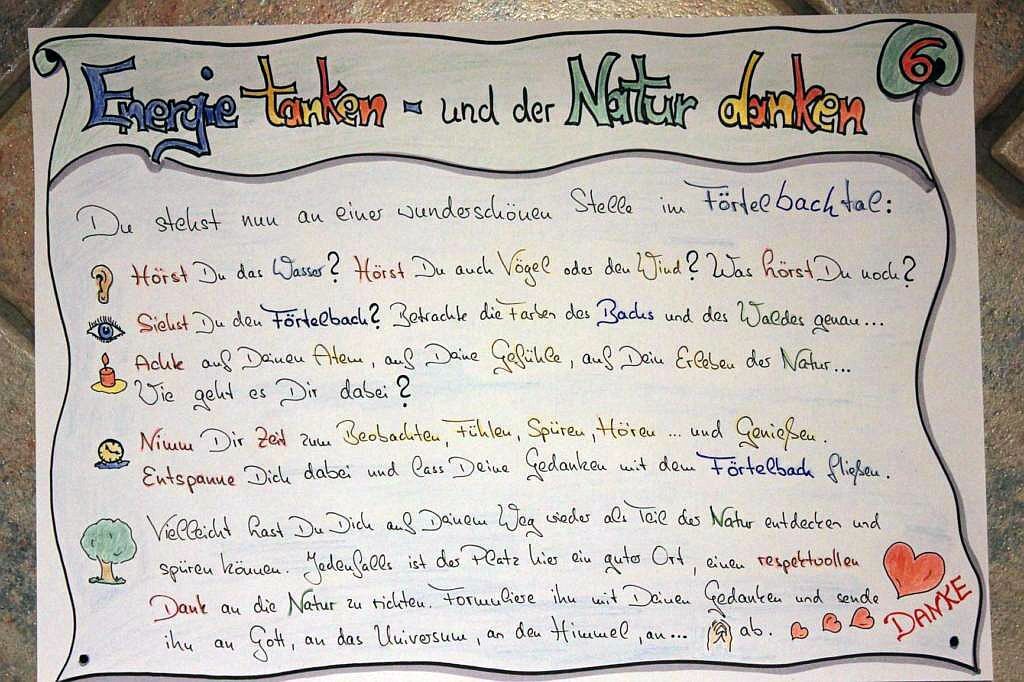 6
Energie tanken - und der Natur danken
Du stehst nun an einer wunderschönen Stelle im Förtelbachtal:
Hörst Du das Wasser? Hörst Du auch Vögel oder den Wind? Was hörst Du noch?
Siehst Du den Förtelbach? Betrachte die Farben des Bachs und des Waldes genau...
Achte auf Deinen Atem, auf Deine Gefühle, auf Dein Erleben der Natur...
Wie geht es Dir dabei?
Nimm Dir Zeit zum Beobachten, Fühlen, Spüren, Hören ... und Genießen.
Entspanne Dich dabei und lass Deine Gedanken mit dem Förtelbach fließen.
Vielleicht hast Du Dich auf Deinem Weg wieder als Teil der Natur entdecken und
spüren können. Jedenfalls ist der Platz hier ein guter Ort, einen respektvollen
Dank an die Natur zu richten. Formuliere ihn mit Deinen Gedanken und sende
ihn an Gott, an das Universum, an den Himmel, an... ab.
DANKE